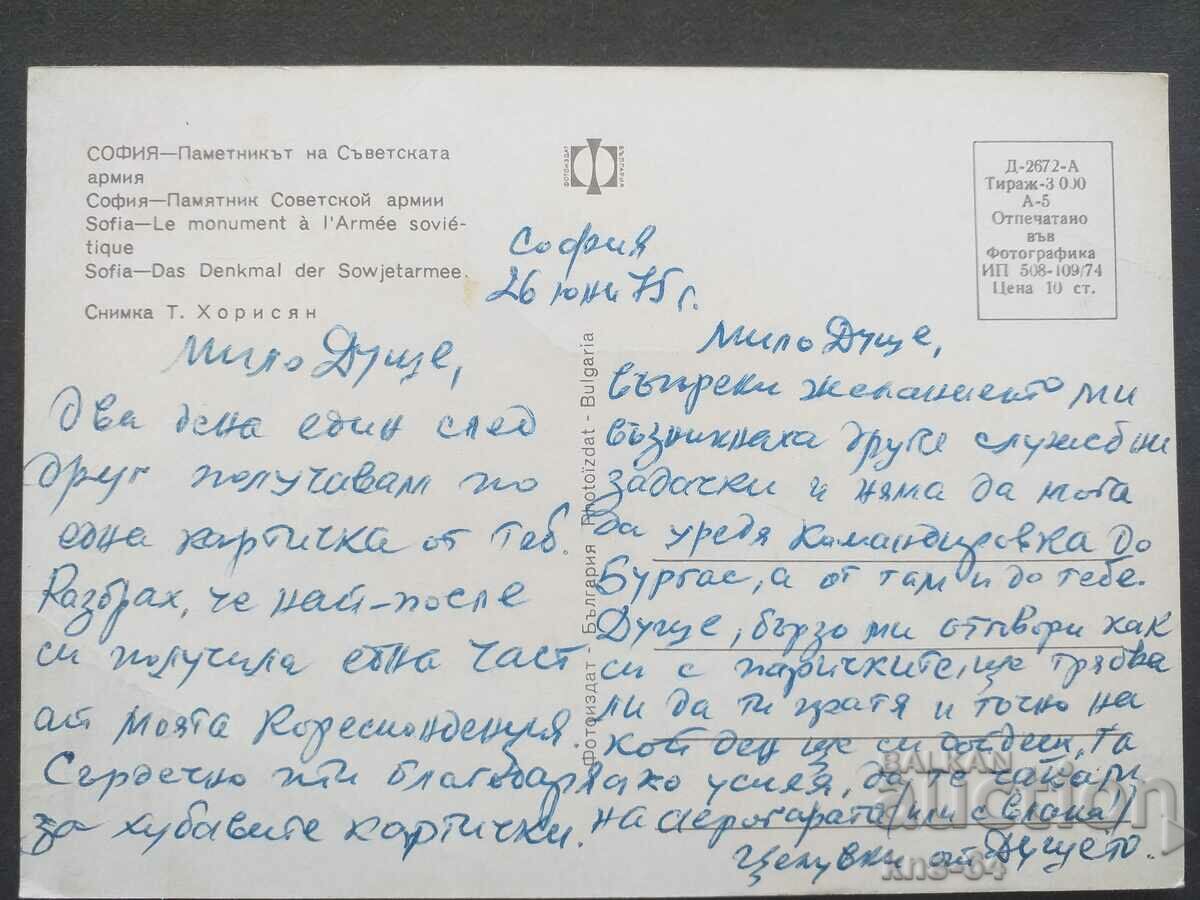 СОФИЯ—Паметникът на Съветската
армия
София—Памятник Советской армии
Sofia—Le monument à l'Armée sovié-
tique
Sofia—Das Denkmal der Sowjetarmee.
Снимка Т. Хорисян
ФОТОИЗДАТ
БЪЛГАРИЯ
Д-2672-А
Тираж-3 000
А-5
Отпечатано
във
Фотографика
ИП 508-109/74
Цена 10 ст.
София
26 юни 75 г.
Мило Дуще,
Два дена един след
друг получавам по
една картичка от теб.
Разбрах, че най-после
си получила една част
от моята кореспонденция
Сърдечно ти благодаря
за хубавите картички.
Фотоиздат - България Photoïzdat - Bulgaria
Мило Дуще,
въпреки желанието ми
възникнаха други служебни
задачки и няма да мога
да уредя командировка до
Бургас, а от там и до тебе.
Дуще, бързо ми отговори как
си с паричките, ще трябва
ли да ти пратя и точно на
кой ден ще си дойдеш, та
ако успея, да те чакам
на аерогарата (или с влака)
Целувки от Дущето.
BALKAN
auction
kns-64